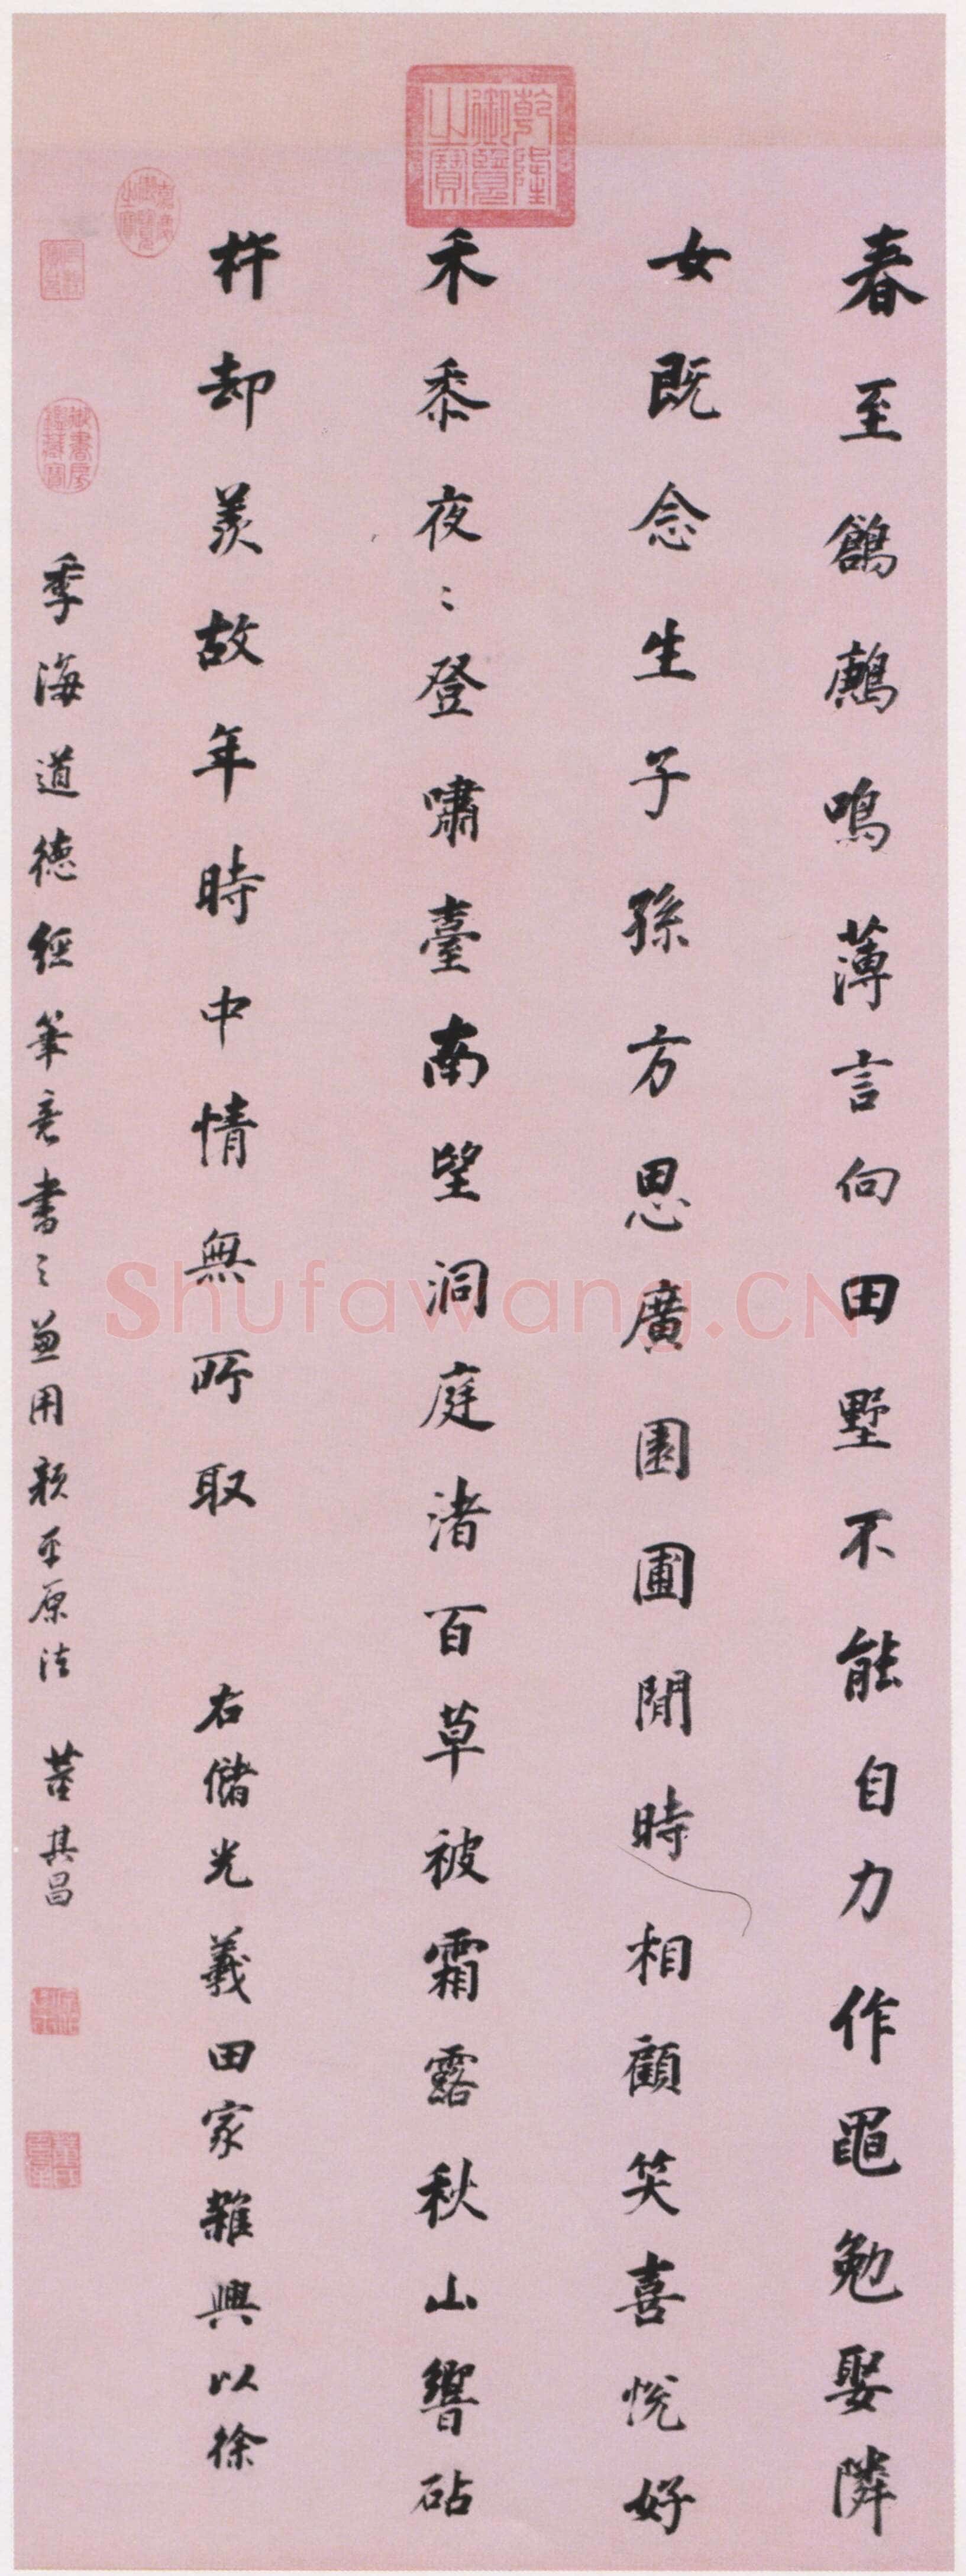 春至鶬鶊鳴薄言向田墅不能自力作黽勉娶隣
女既念生子孫方思廣園圃閒時相顧笑喜悅好
禾黍夜〻登嘯臺南望洞庭渚百草被霜露秋山響砧
杵却羨故年時中情無所取 右儲光羲田家雜興以徐
季海道德經筆意書之兼用顏平原法 董其昌
乾隆御覽之寶
嘉慶御覽之寶
御書房鑑藏寶
Shufawang.CN